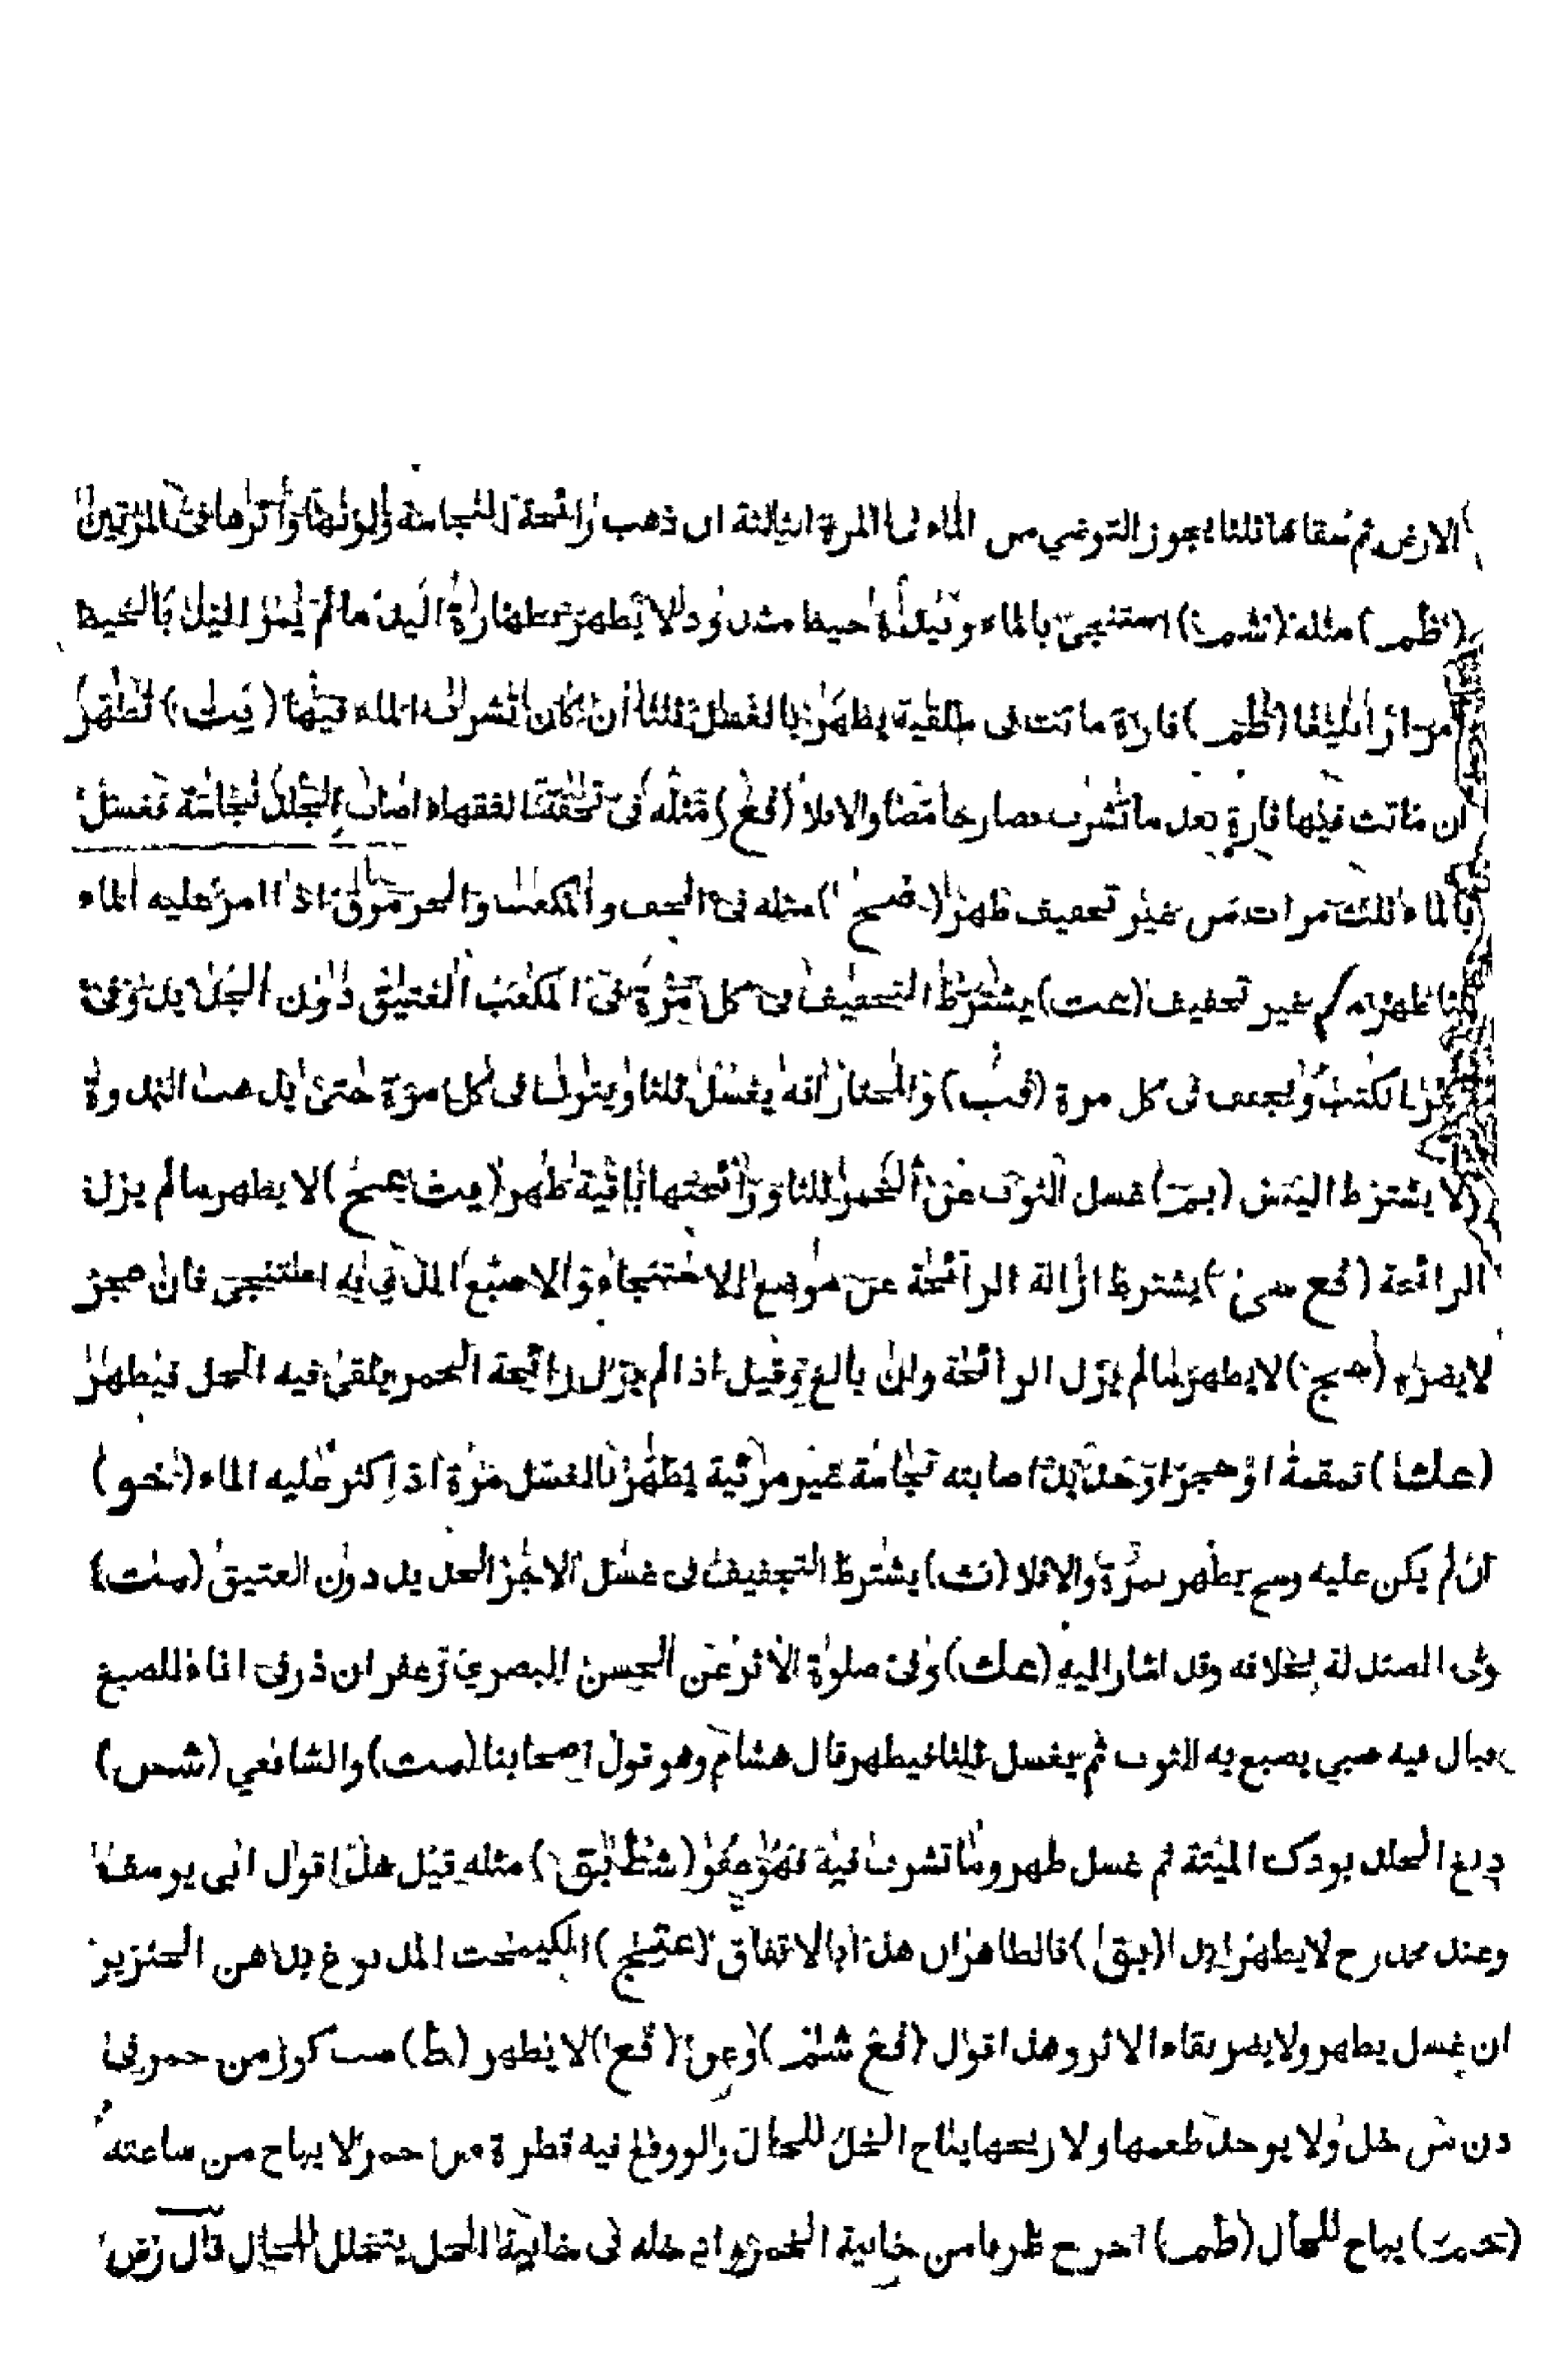 الارض ثم سقاها ثلثا يجوز التوضي من الماء في المرة الثالثة ان ذهب رائحة النجاسة ولونها واثرها في المرتين
(ظم) مثله (شم) استنجى بالماء وبيده خيط مشدود لا يطهر بطهارة اليد ما لم يمر اليد بالخيط
مرارا بليغا (ظم) فارة ماتت في يطهر بالغسل ثلثا ان كان تشرب الماء فيها (يت) تطهر
ان ماتت فيها فارة بعد ما تشرب فصار حامضا والا فلا (فع) مثله في تحفة الفقهاء اصاب الجلد نجاسة فغسل
بالماء ثلث مرات من غير تجفيف طهر (ضح) مثله في الخف والمكعب والجرموق اذا امر عليه الماء
ثلثا طهر من غير تجفيف (عت) يشترط التجفيف في كل مرة في المكعب العتيق دون الجديد وفي
الكتب ويجفف في كل مرة (قب) والمختار انه يغسل ثلثا ويترك في كل مرة حتى يذهب الندوة
ولا يشترط اليبس (بم) غسل الثوب عن الخمر ثلثا ورائحتها باقية طهر (يت عح) لا يطهر ما لم يزل
الرائحة (فع سى) يشترط ازالة الرائحة عن موضع الاستنجاء والاصبع الذي به استنجى فان عجز
لا يضره (حج) لا يطهر ما لم يزل الرائحة وان بالغ وقيل اذا لم يزل رائحة الخمر يلقى فيه الخل فيطهر
(عك) او حجر او اصابته نجاسة غير مرئية يطهر بالغسل مرة اذا كثر عليه الماء (نحو)
ان لم يكن عليه وسخ يطهر بمرة والا فلا (نث) يشترط التجفيف في غسل الاجر الجديد دون العتيق (ست)
وفى المسئلة بخلافه وقد اشار اليه (عك) وفى صلوة الاثر عن الحسن البصري زعفران ذر في اناء للصبغ
فبال فيه صبي يصبغ به الثوب ثم يغسل ثلثا فيطهر قال هشام وهو قول اصحابنا (مت) والشافعي (شس)
دبغ الجلد بودك الميتة ثم غسل طهر وما تشرب فيه فهو عفو (شظ بق) مثله قيل هذا قول ابي يوسف
وعند محمد رح لا يطهر ابدا (بق) فالظاهر ان هذا بالاتفاق (عتج) الكيمخت المدبوغ بدهن الخنزير
ان غسل يطهر ولا يضر بقاء الاثر وهذا قول (فع شم) وعن (قع) لا يطهر (ط) صب كوز من خمر في
دن من خل ولا يوجد طعمها ولا ريحها يباح الخل للحال ولو وقع فيه قطرة من خمر لا يباح من ساعته
(نحم) يباح للحال (ظم) اخرج ظرفا من خابية الخمر وادخله في خابية الخل يتخلل للحال قال رض